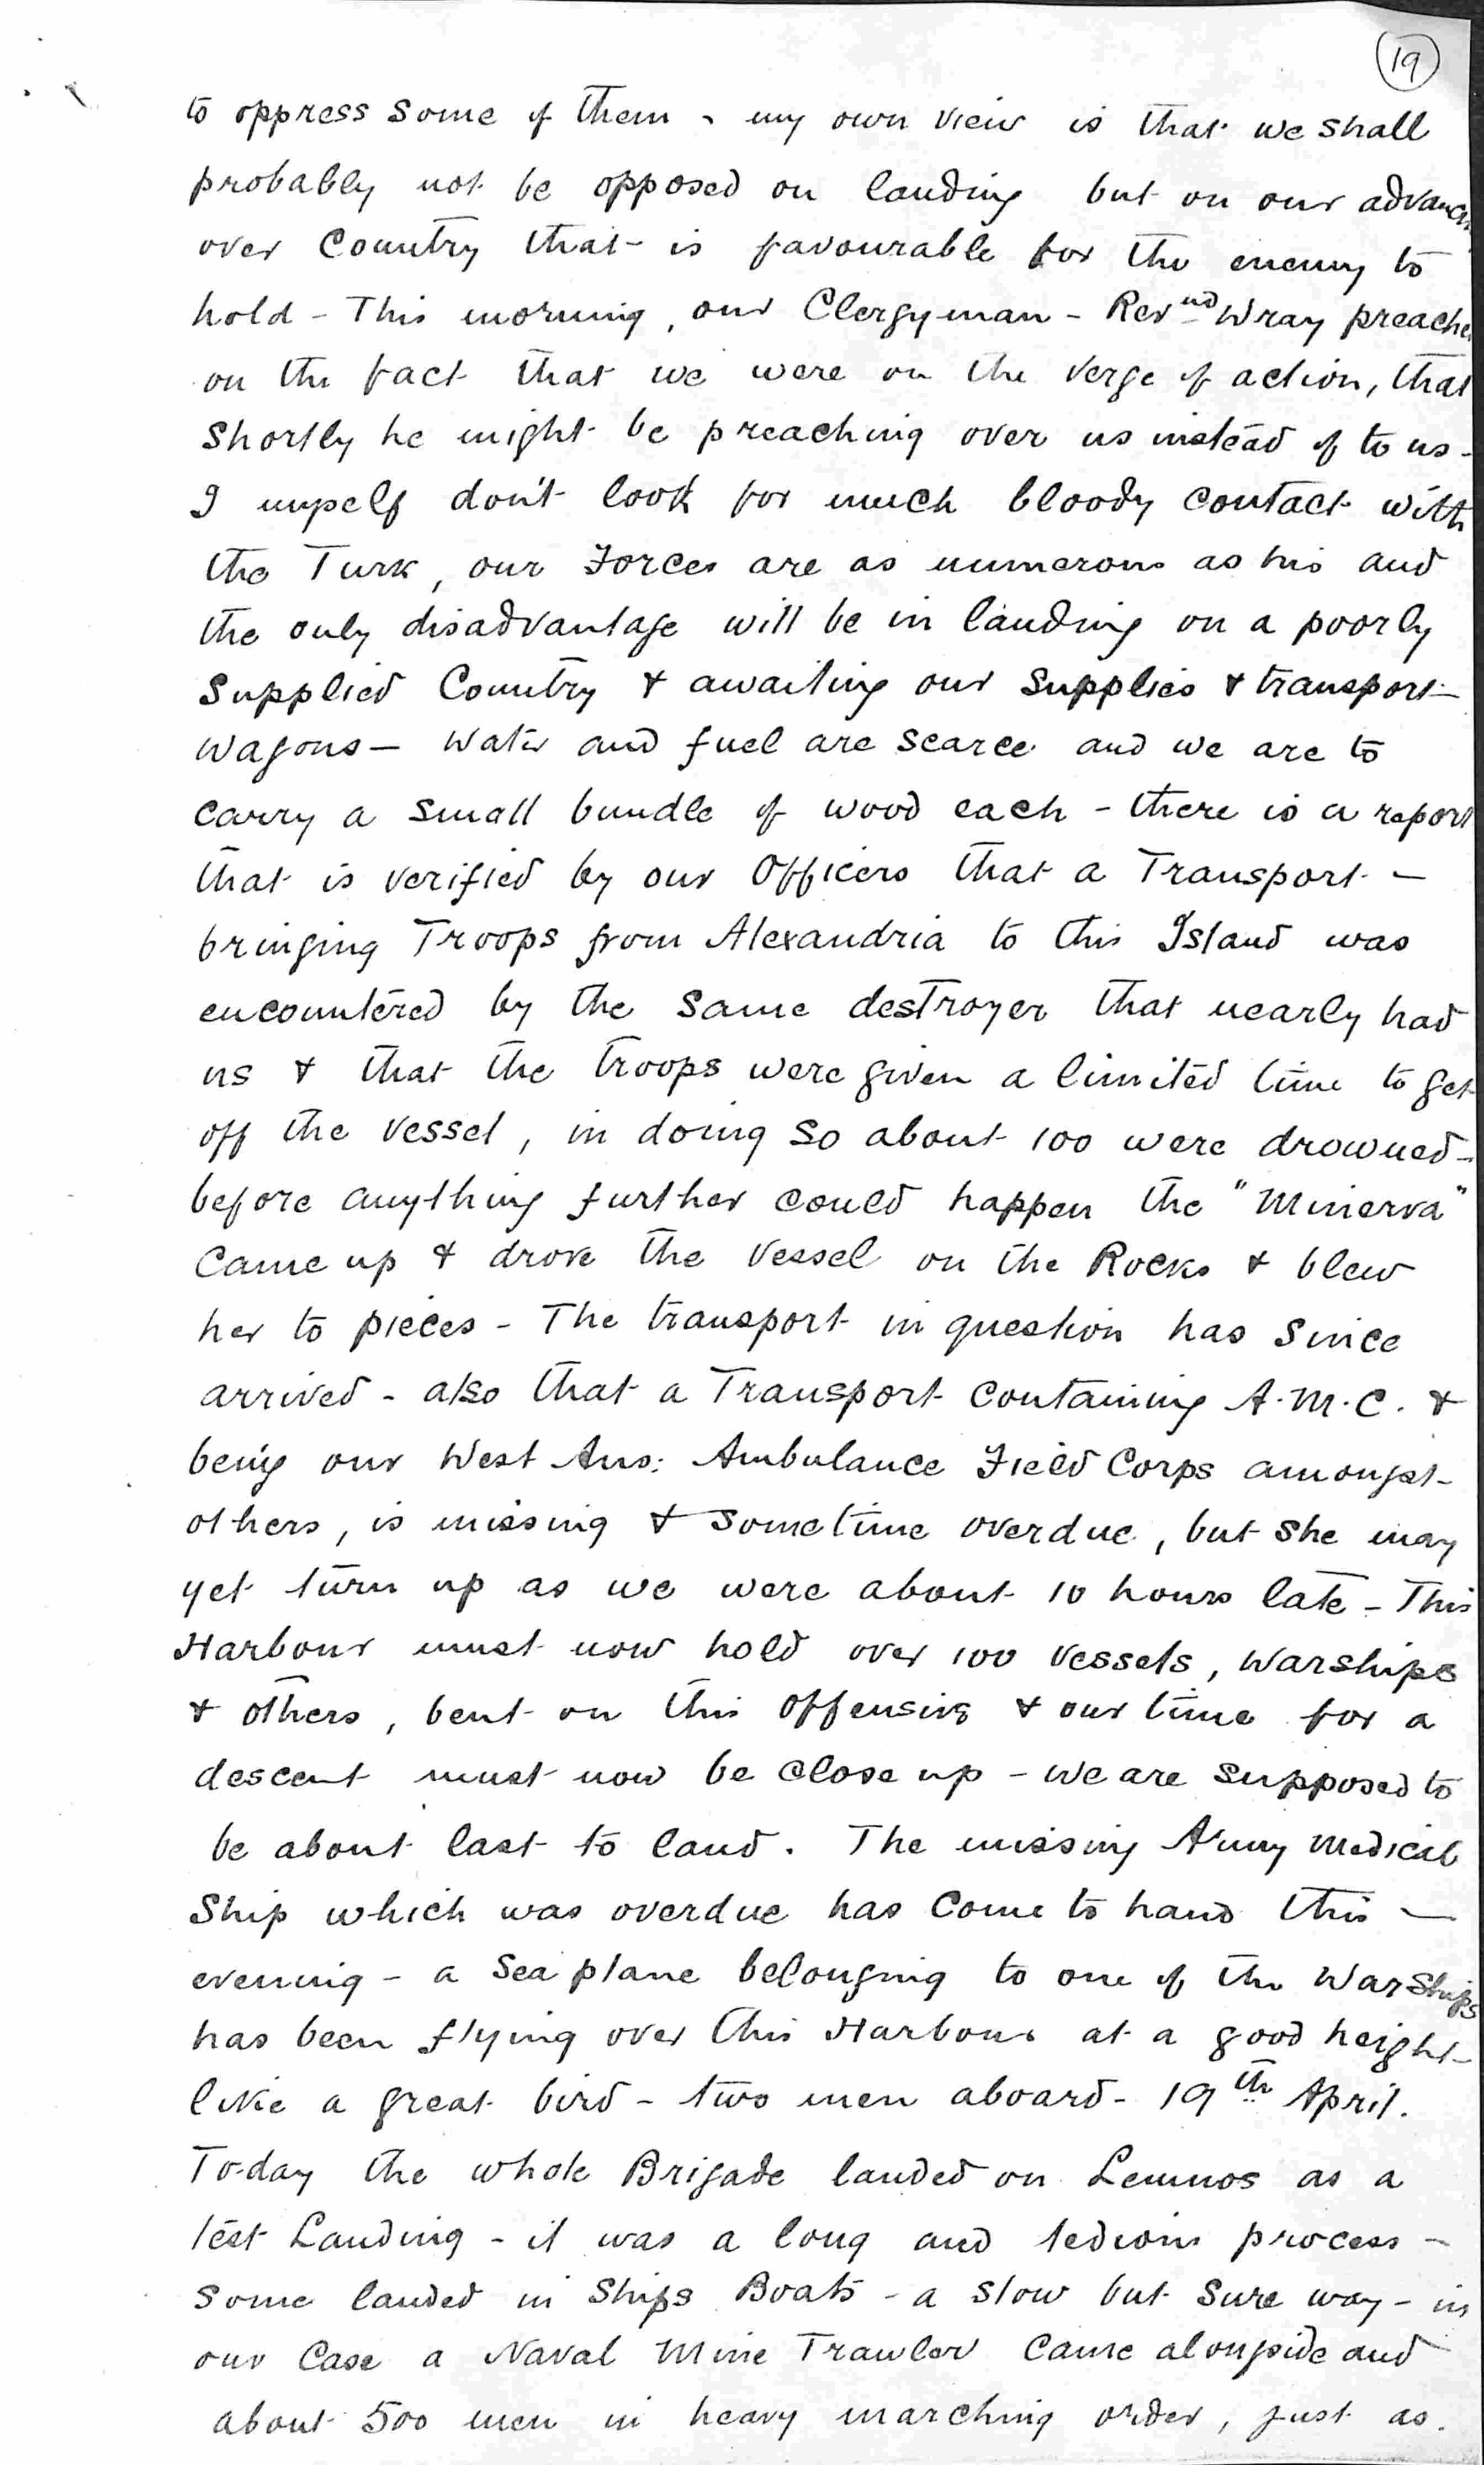 19
to oppress some of them - my own view is that we shall
probably not be opposed on landing but on our
over Country that is favourable for the enemy to
hold - This morning, our Clergyman - Revnd Wray
on the fact that we were on the verge of action, that
shortly he might be preaching over us instead of to us -
I myself don't look for much bloody contact with
the Turk, our Forces are as numerous as his and
the only disadvantage will be in landing on a poorly
supplied Country & awaiting our supplies & transport -
wagons - Water and fuel are scarce and we are to
carry a small bundle of wood each - there is a report
that is verified by our Officers that a Transport -
bringing Troops from Alexandria to this Island was
encountered by the same destroyer that nearly had
us & that the troops were given a limited time to get
off the vessel, in doing so about 100 were drowned -
before anything further could happen the "Minerva"
came up & drove the vessel on the Rocks & blew
her to pieces - The transport in question has since
arrived - also that a Transport containing A.M.C. &
being our West Aus: Ambulance Field Corps amongst -
others, is missing & sometime overdue, but she may
yet turn up as we were about 10 hours late - This
Harbour must now hold over 100 vessels, warships
& others, bent on this offensive & our time for a
descent must now be close up - we are supposed to
be about last to land. The missing Army Medical
Ship which was overdue has come to hand this -
evening - a Sea plane belonging to one of the Warships
has been flying over this Harbour at a good height -
like a great bird - two men aboard - 19th April.
To-day the whole Brigade landed on Lemnos as a
test Landing - it was a long and tedious process -
some landed in Ships Boats - a slow but sure way - in
our case a Naval Mine Trawler came alongside and
about 500 men in heavy marching order, just as